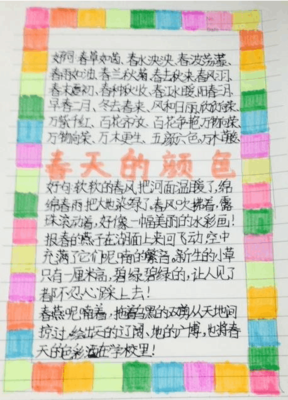 好词:春草如茵、春水泱泱、春波荡漾、
春雨如油、春兰秋菊、春去秋来、春风
春末夏初、春种秋收、春江水暖、阳春三月、
早春二月、冬去春来、风和日丽、欣欣向荣、
万紫千红、百花齐放、百花争艳、万物复苏、
万物向荣、万木更生、五颜六色、万木
春天的颜色
好句:软软的春风把河面温暖了,绵
绵春雨把大地染绿了,春风吹拂着,露
珠滚动着,好像一幅美丽的水彩画!
报春的燕子在湖面上来回飞动,空中
充满了它们呢喃的繁音,新生的小草
只有一厘米高,碧绿碧绿的,让人见了
都不忍心踩上去!
春燕呢喃着,拖着乌黑的双剪从天地间
掠过,绘出天的辽阔,地的广博,也将春
天的色彩洒在学校里!